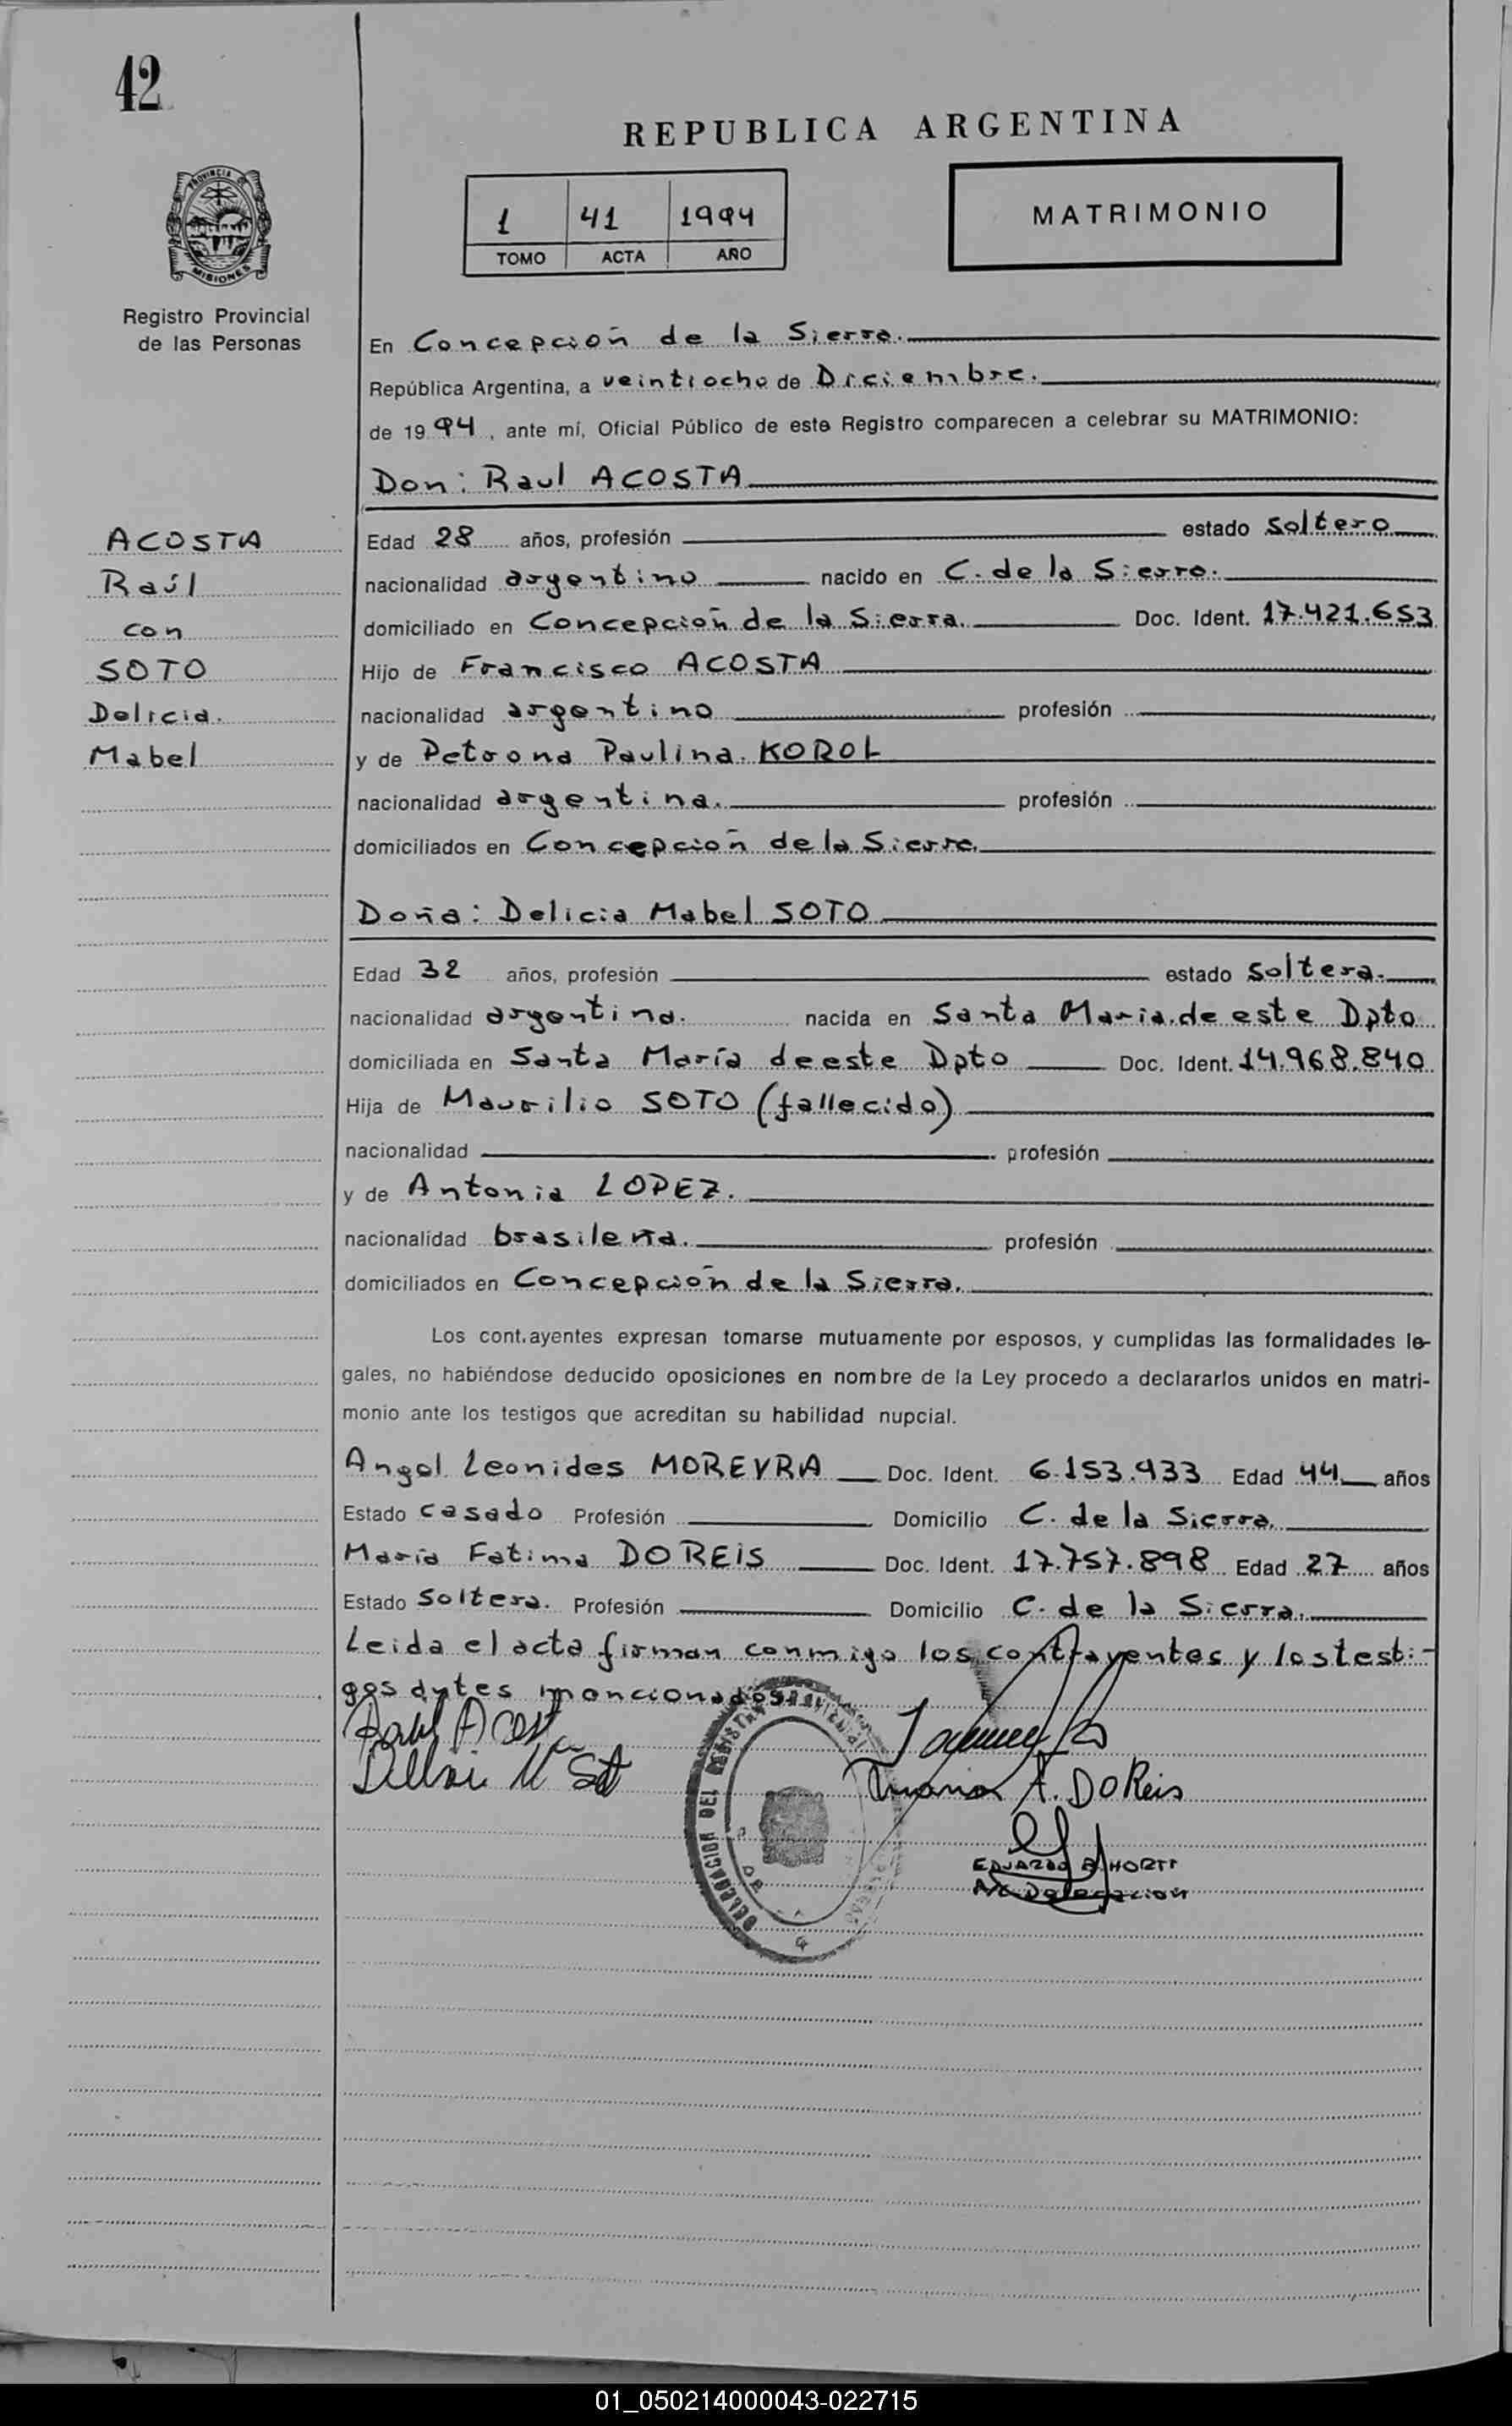 42
REPUBLICA ARGENTINA
PROVINCIA DE
MISIONES
Registro Provincial
de las Personas
1 41 1994
TOMO ACTA AÑO
MATRIMONIO
En Concepción de la Sierra.
República Argentina, a veintiocho de Diciembre.
de 1994, ante mí, Oficial Público de este Registro comparecen a celebrar su MATRIMONIO:
Don: Raul ACOSTA
ACOSTA
Raúl
con
SOTO
Delicia.
Mabel
Edad 28 años, profesión estado soltero
nacionalidad argentino nacido en C. de la Sierra.
domiciliado en Concepción de la Sierra. Doc. Ident. 17.421.653
Hijo de Francisco ACOSTA
nacionalidad argentino profesión
y de Petrona Paulina KOROL
nacionalidad argentina. profesión
domiciliados en Concepción de la Sierra.
Doña: Delicia Mabel SOTO
Edad 32 años, profesión estado soltera.
nacionalidad argentina. nacida en Santa Maria de este Dpto
domiciliada en Santa María de este Dpto Doc. Ident. 14.968.840
Hija de Maurilio SOTO (fallecido)
nacionalidad profesión
y de Antonia LOPEZ.
nacionalidad brasileña. profesión
domiciliados en Concepción de la Sierra.
Los cont.ayentes expresan tomarse mutuamente por esposos, y cumplidas las formalidades le-
gales, no habiéndose deducido oposiciones en nombre de la Ley procedo a declararlos unidos en matri-
monio ante los testigos que acreditan su habilidad nupcial.
Angel Leonides MOREYRA Doc. Ident. 6.153.933 Edad 44 años
Estado casado Profesión Domicilio C. de la Sierra.
María Fatima DOREIS Doc. Ident. 17.757.898 Edad 27 años
Estado Soltera. Profesión Domicilio C. de la Sierra.
Leida el acta firman conmigo los contrayentes y los testi-
gos antes mencionados.
Raul Acosta
DELEGACION DEL REGISTRO PROVINCIAL
Maria F. DoReis
EDUARDO
A/C Delegacion
01_050214000043-022715